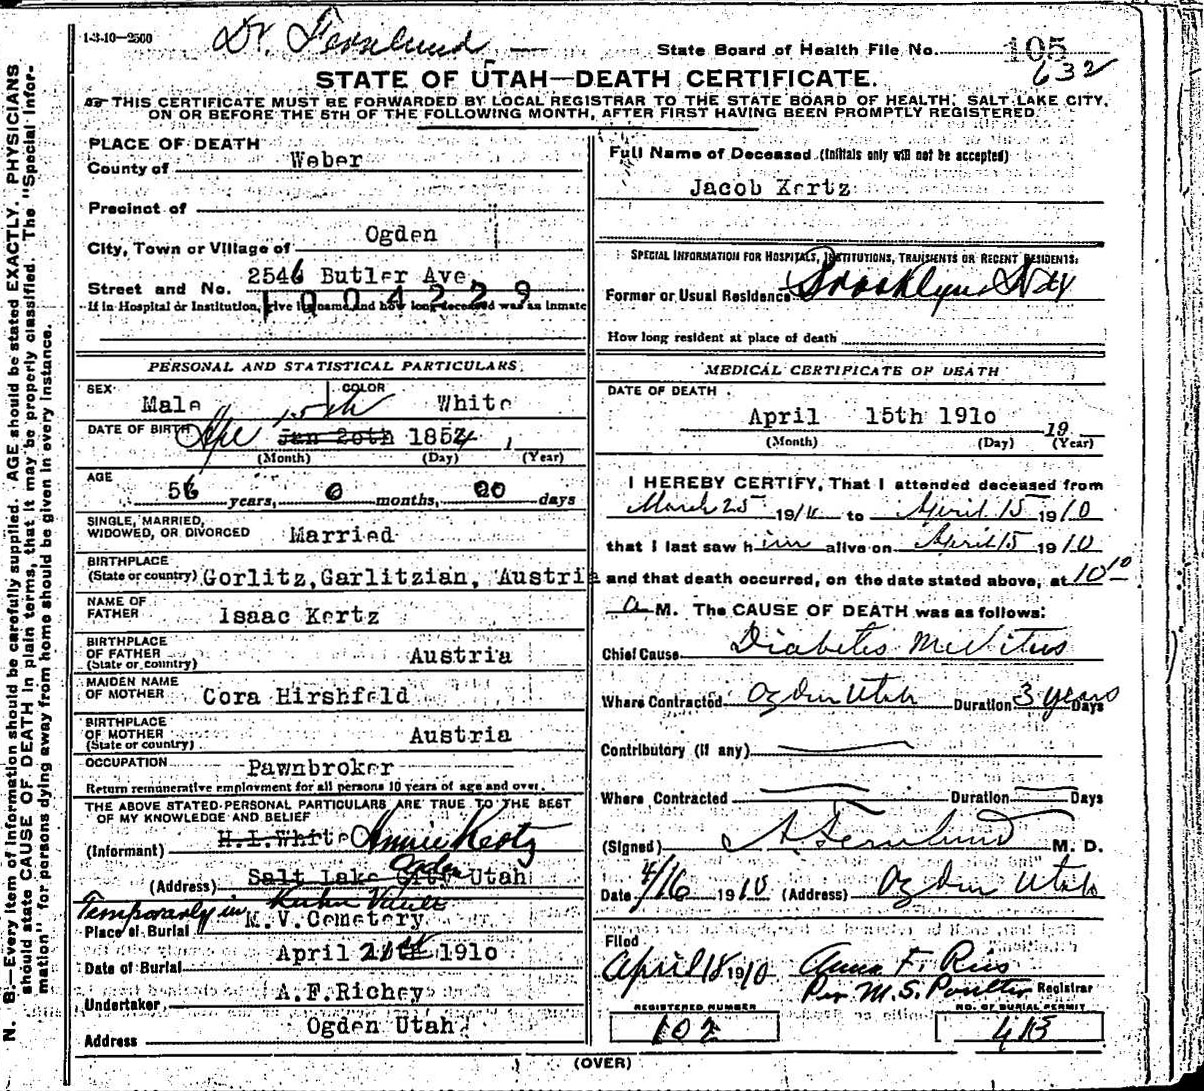 1-3-10—2500
Dr. Fernlund
State Board of Health File No. 105
632
STATE OF UTAH—DEATH CERTIFICATE.
THIS CERTIFICATE MUST BE FORWARDED BY LOCAL REGISTRAR TO THE STATE BOARD OF HEALTH, SALT LAKE CITY,
ON OR BEFORE THE 5TH OF THE FOLLOWING MONTH, AFTER FIRST HAVING BEEN PROMPTLY REGISTERED.
N. B.—Every item of information should be carefully supplied. AGE should be stated EXACTLY. PHYSICIANS
should state CAUSE OF DEATH in plain terms, that it may be properly classified. The "Special Infor-
mation" for persons dying away from home should be given in every instance.
PLACE OF DEATH
County of Weber
Precinct of
City, Town or Village of Ogden
Street and No. 2546 Butler Ave
1004229
If in Hospital or Institution, give its name and how long deceased was an inmate
PERSONAL AND STATISTICAL PARTICULARS
SEX Male COLOR White
15th
DATE OF BIRTH Apr Jan 20th 1854
(Month) (Day) (Year)
AGE
56 years, 0 months, 00 days
SINGLE, MARRIED,
WIDOWED, OR DIVORCED Married
BIRTHPLACE
(State or country) Gorlitz, Garlitzian, Austria
NAME OF
FATHER Isaac Kertz
BIRTHPLACE
OF FATHER Austria
(State or country)
MAIDEN NAME
OF MOTHER Cora Hirshfeld
BIRTHPLACE
OF MOTHER Austria
(State or country)
OCCUPATION Pawnbroker
Return remunerative employment for all persons 10 years of age and over.
THE ABOVE STATED PERSONAL PARTICULARS ARE TRUE TO THE BEST
OF MY KNOWLEDGE AND BELIEF
(Informant) H.L.White Annie Kertz
Ogden
(Address) Salt Lake City Utah
Temporarily in Kuhn Vault
Place of Burial M.V.Cemetery
Date of Burial April 21st 1910
Undertaker A.F.Richey
Address Ogden Utah
Full Name of Deceased (Initials only will not be accepted)
Jacob Kertz
SPECIAL INFORMATION FOR HOSPITALS, INSTITUTIONS, TRANSIENTS OR RECENT RESIDENTS:
Former or Usual Residence Brooklyn
How long resident at place of death
MEDICAL CERTIFICATE OF DEATH
DATE OF DEATH
April 15th 1910 19
(Month) (Day) (Year)
I HEREBY CERTIFY, That I attended deceased from
March 25 1910 to April 15 1910
that I last saw him alive on April 15 1910
and that death occurred, on the date stated above, at 10 10
a M. The CAUSE OF DEATH was as follows:
Chief Cause Diabetis Mellitus
Where Contracted Ogden Utah Duration 3 years Days
Contributory (if any)
Where Contracted Duration Days
(Signed) A. Fernlund M. D.
Date 4/16 1910 (Address) Ogden Utah
Filed
April 18 1910 Anna F. Ries
Per M.S. Poulter Registrar
REGISTERED NUMBER
102
NO. OF BURIAL PERMIT
413
(OVER)